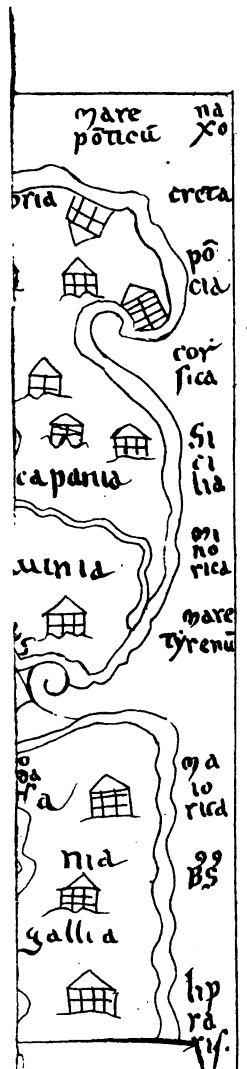 mare
pōticū
na
xo
bria
creta
pō
cia
corſ
ſica
Si
ci
lia
capania
minia
mi
no
rica
mare
tyrenū
ma
io
rica
nia
gallia
lip
ra
ris.